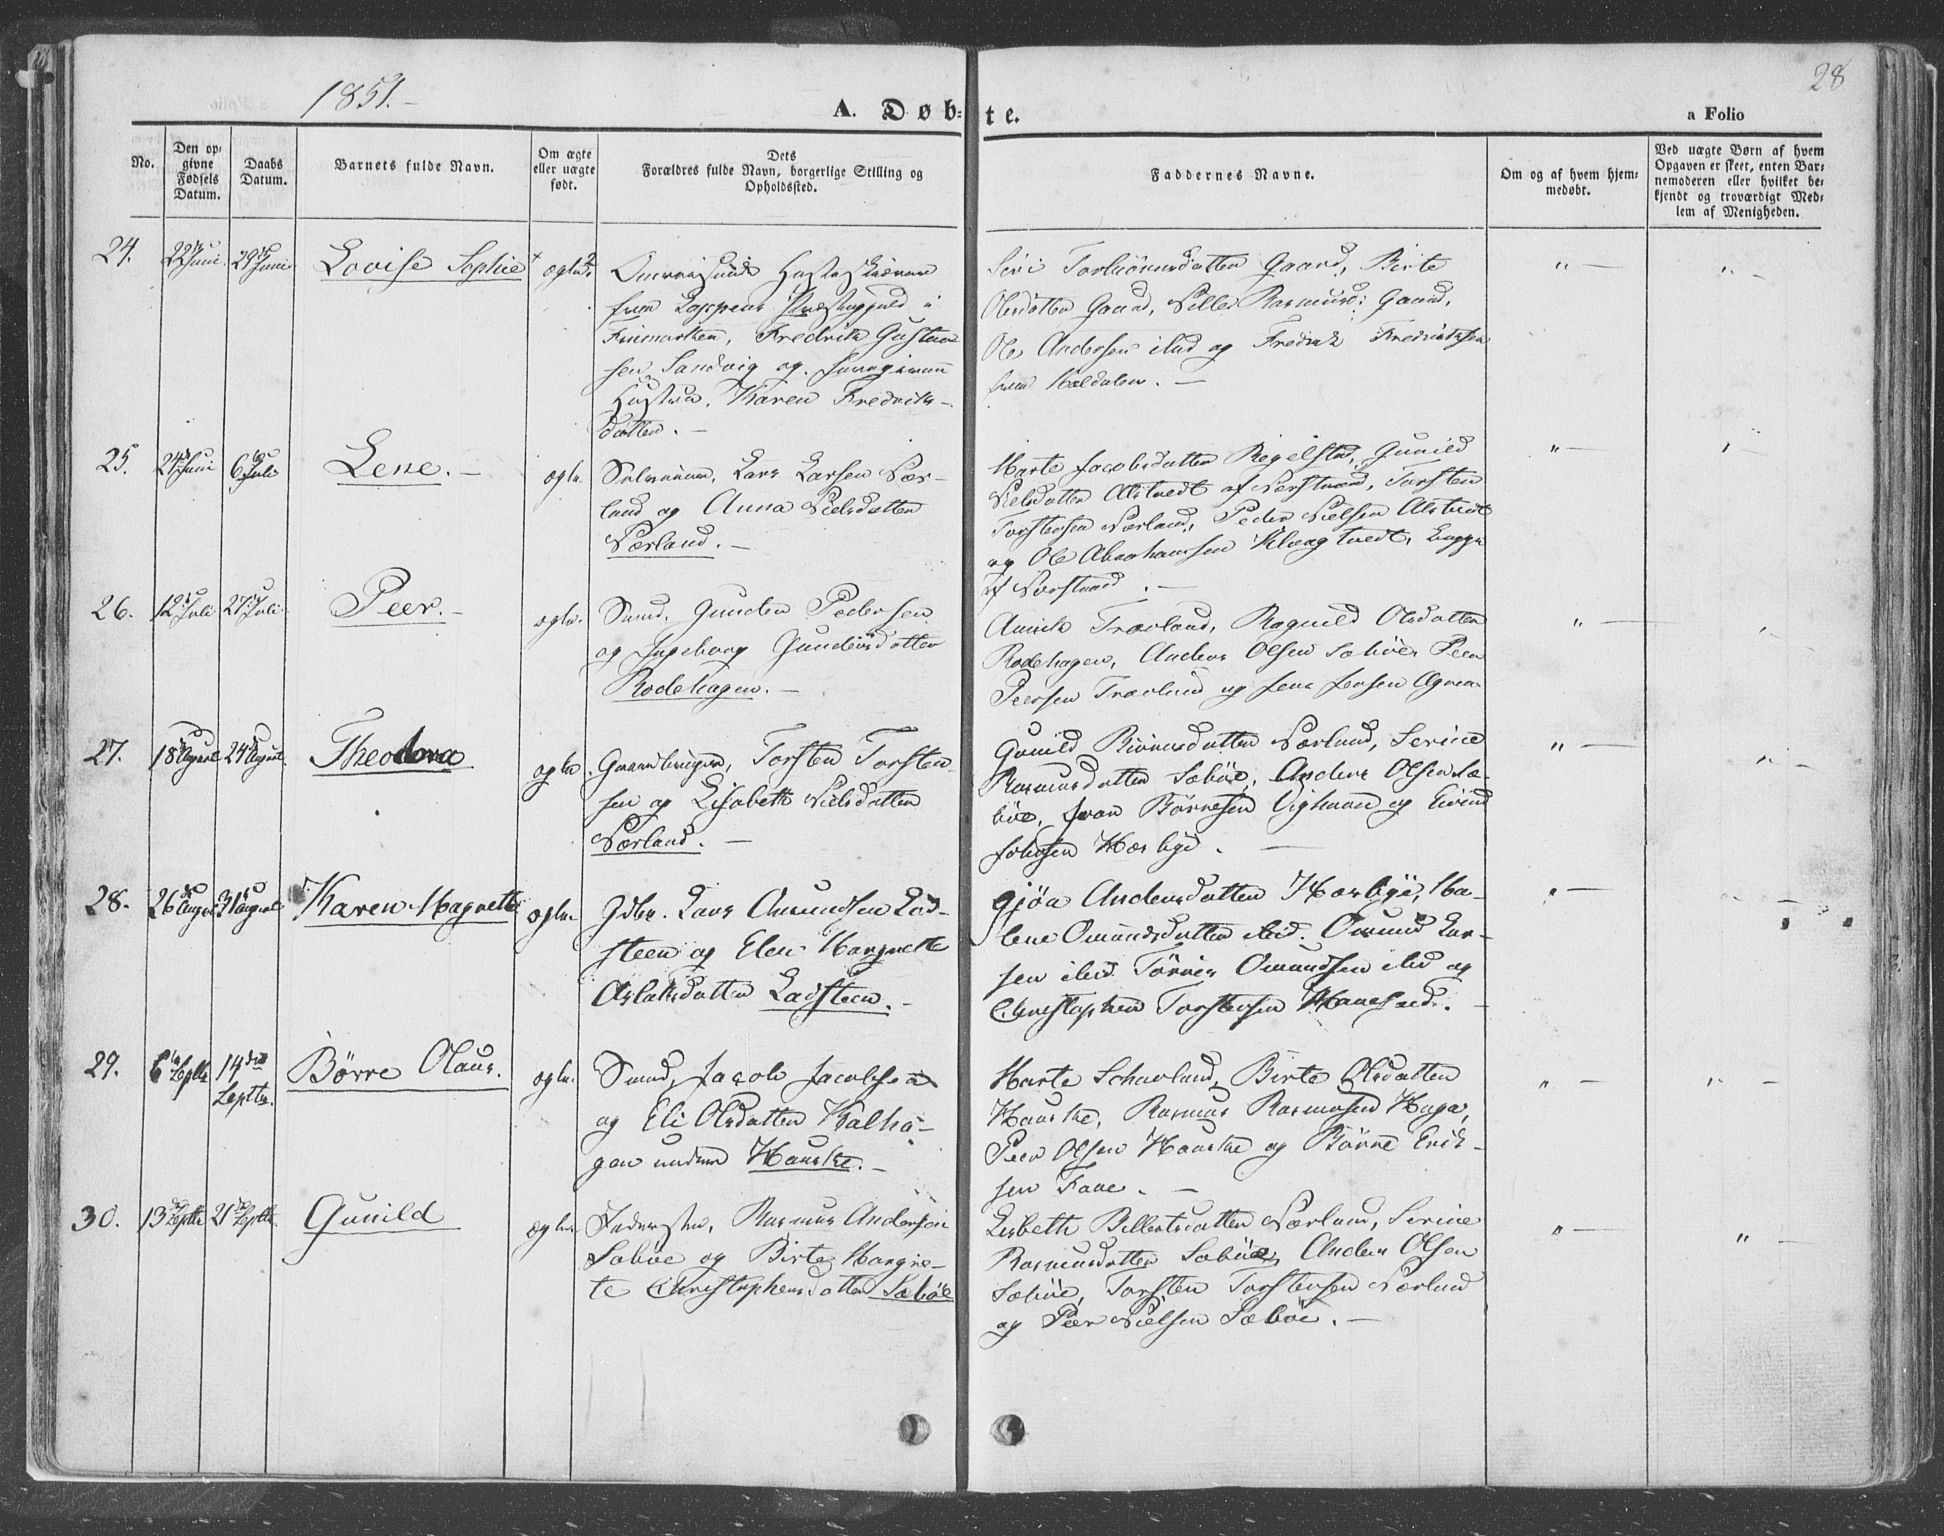 1851.
28
A. Døb-
te.
a Folio
No.
Den op-
givne
Fødsels
Datum.
Daabs
Datum.
Barnets fulde Navn.
Om ægte
eller uægte
født.
Dets
Forældres fulde Navn, borgerlige Stilling og
Opholdssted.
Faddernes Navne.
Om og af hvem hjem-
medøbt.
Ved uægte Børn af hvem
Opgaven er skeet, enten Bar-
nemoderen eller hvilket be-
kjendt og troværdigt Med-
lem af Menigheden.
24.
22 Juni
29 Juni
Lovise Sophie
ægte
fra Loppens Præstegjeld i
Finmarken, Fredrik Gustav
sen Sandvig og
Hustru, Karen Fredriks-
datter. -
Siri Torbiörnsdatter Gaard, Birte
Olsdatter Gaard, Sille Rasmusd: Gaard,
Ole Andersen ibid og Fredrik Fredriksen
fra . -
25.
24 Juni
6 Juli
Lene. -
ægte.
Selveier, Lars Larsen Nær-
land og Anna Nielsdatter
Nærland. -
Marte Jacobsdatter Reyelstad, Gunild
Nielsdatter Alstvedt af Nerstrand, Torsten
Torstensen Nærland, Peder Nielsen Alstvedt
og Ole Abrahamsen
af Nerstrand. -
26.
12 Juli
27 Juli
Peer. -
ægte.
Smed, Gunder Pedersen
og Ingeborg Gundersdatter
Rodehagen. -
Træland, Ragnild Olsdatter
Rodehagen, Anders Olsen Sæbøe, Peer
Peersen Træland og Jens Jensen
27.
18 August
24 August
Theodora
ægte
Gaardbruger, Torsten Torsten-
sen og Lisabeth Nielsdatter
Nærland. -
Gunild Biörnsdatter Nærland, Serine
Rasmusdatter Sæbøe, Anders Olsen Sæ-
bøe, Børresen og Eivind
Johnsen Hæsbye. -
28.
26 August
31 August
Karen Magrethe
ægte.
Gdbr. Lars Amundsen Lad-
steen og Elen Margrethe
Aslaksdatter Ladsteen. -
Gjöa Andersdatter Hæsbye, Ma-
lene Omundsdatter ibid. Omund Lar-
sen ibid. Törres Omundsen ibid og
Christopher Torstensen
29.
6 Septbr
14de
Septbr.
Börre Olaus.
ægte.
Smed, Jacob Jacobsen
og Eli Olsdatter Kalha-
gen under Hauske. -
Marte Schavland, Birte Olsdatter
Hauske, Rasmus Rasmusen Haga,
Peer Olsen Hauske og Börre Erik-
sen Faae. -
30.
13 Septbr
21 Septbr.
Gunild
ægte.
Inderster, Rasmus Andersen
Sæbøe og Birte Margre-
te Christophersdatter Sæbøe
Lisbeth Villertsdatter Nærland, Serine
Rasmusdatter Sæbøe, Anders Olsen
Sæbøe, Torsten Torstensen Nærland
og Peer Nielsen Sæbøe. -